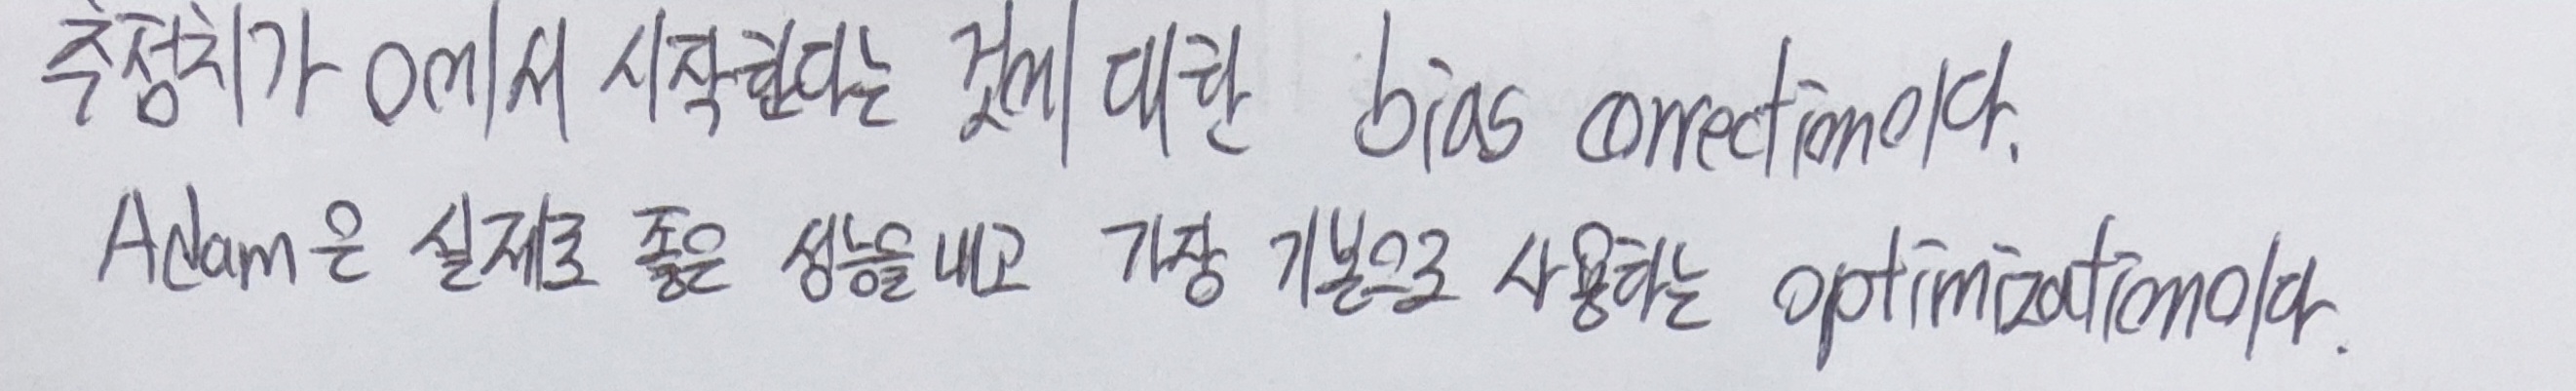 추정치가 0에서 시작한다는 것에 대한 bias correction이다.
Adam은 실제로 좋은 성능을 내고 가장 기본으로 사용하는 optimization이다.